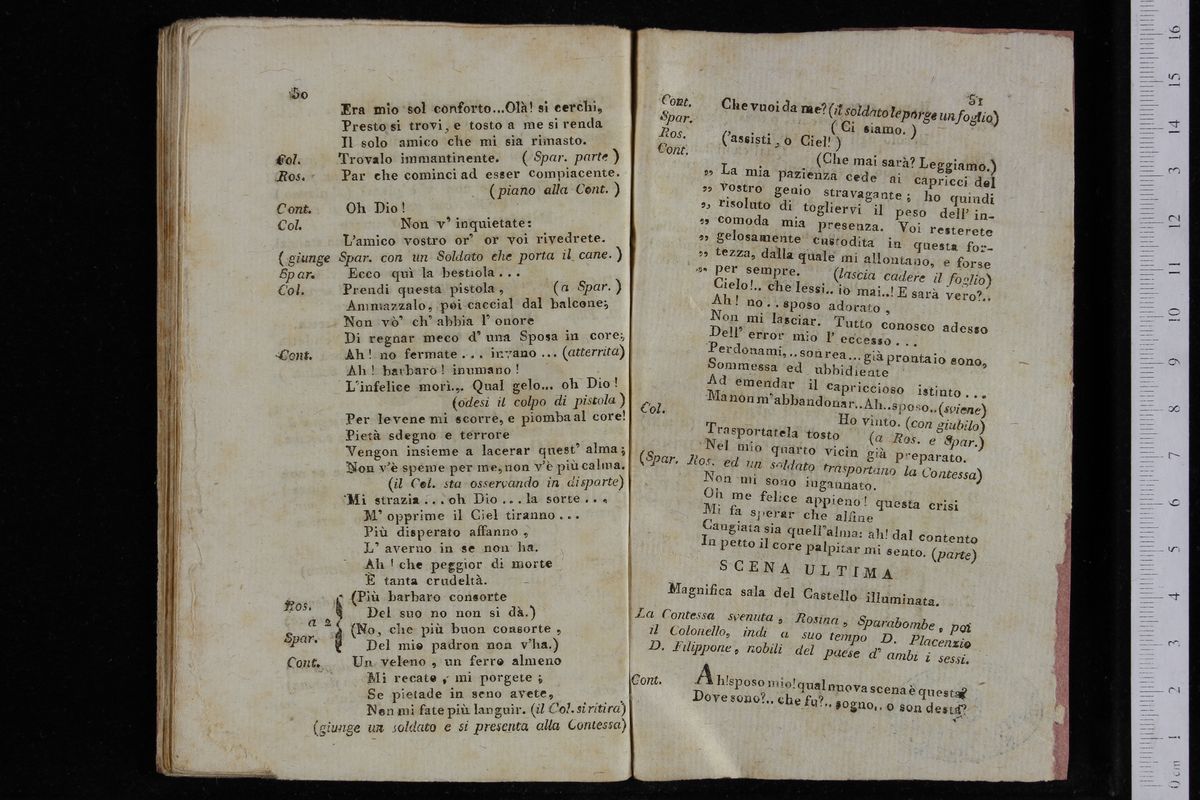 50
Era mio sol conforto...Olà! si cerchi,
Presto si trovi, e tosto a me si renda
Il solo amico che mi sia rimasto.
Col. Trovalo immantinente. ( Spar. parte )
Ros. Par che cominci ad esser compiacente.
(piano alla Cont. )
Cont. Oh Dio !
Col. Non v' inquietate:
L'amico vostro or' or voi rivedrete.
( giunge Spar. con un Soldato che porta il cane. )
Spar. Ecco quì la bestiola . . .
Col. Prendi questa pistola , (a Spar. )
Ammazzalo, poi caccial dal balcone;
Non vò' ch' abbia l' onore
Di regnar meco d' una Sposa in core;
Cont. Ah ! no fermate . . . invano ... (atterrita)
Ah ! barbaro ! inumano !
L'infelice morì... Qual gelo... oh Dio !
(odesi il colpo di pistola )
Per le vene mi scorre, e piomba al core!
Pietà sdegno e terrore
Vengon insieme a lacerar quest' alma;
Non v'è speme per me, non v'è più calma.
(il Col. sta osservando in disparte)
Mi strazia . . . oh Dio . . . la sorte . . .
M' opprime il Ciel tiranno . . .
Più disperato affanno ,
L' averno in se non ha.
Ah ! che peggior di morte
È tanta crudeltà.
Ros. (Più barbaro consorte
a 2 Del suo no non si dà.)
(No, che più buon consorte ,
Spar. Del mio padron non v'ha.)
Cont. Un veleno , un ferro almeno
Mi recate , mi porgete ;
Se pietade in seno avete,
Non mi fate più languir. (il Col. si ritira)
(giunge un soldato e si presenta alla Contessa)
51
Cont. Che vuoi da me? (il soldato le porge un foglio)
Spar. ( Ci siamo. )
Ros. ('assisti, o Ciel! )
Cont. (Che mai sarà? Leggiamo.)
„ La mia pazienza cede ai capricci del
„ vostro genio stravagante ; ho quindi
„ risoluto di togliervi il peso dell' in-
„ comoda mia presenza. Voi resterete
„ gelosamente custodita in questa for-
„ tezza, dalla quale mi allontano, e forse
„ per sempre. (lascia cadere il foglio)
Cielo!.. che lessi.. io mai..! E sarà vero?..
Ah ! no . . sposo adorato ,
Non mi lasciar. Tutto conosco adesso
Dell' error mio l' eccesso . . .
Perdonami,.. son rea... già pronta io sono,
Sommessa ed ubbidiente
Ad emendar il capriccioso istinto . . .
Ma non m'abbandonar..Ah..sposo..(sviene)
Col. Ho vinto. (con giubilo)
Trasportatela tosto (a Ros. e Spar.)
Nel mio quarto vicin già preparato.
(Spar. Ros. ed un soldato trasportano la Contessa)
Non mi sono ingannato.
Oh me felice appieno! questa crisi
Mi fa sperar che alfine
Cangiata sia quell'alma: ah! dal contento
In petto il core palpitar mi sento. (parte)
SCENA ULTIMA
Magnifica sala del Castello illuminata.
La Contessa svenuta, Rosina, Sparabombe, poi
il Colonello, indi a suo tempo D. Placenzio
D. Filippone, nobili del paese d' ambi i sessi.
Cont. Ah! sposo mio! qual nuova scena è questa?
Dove sono?.. che fu?.. sogno,. o son desta?
0 cm 1 2 3 4 5 6 7 8 9 10 11 12 13 14 15 16